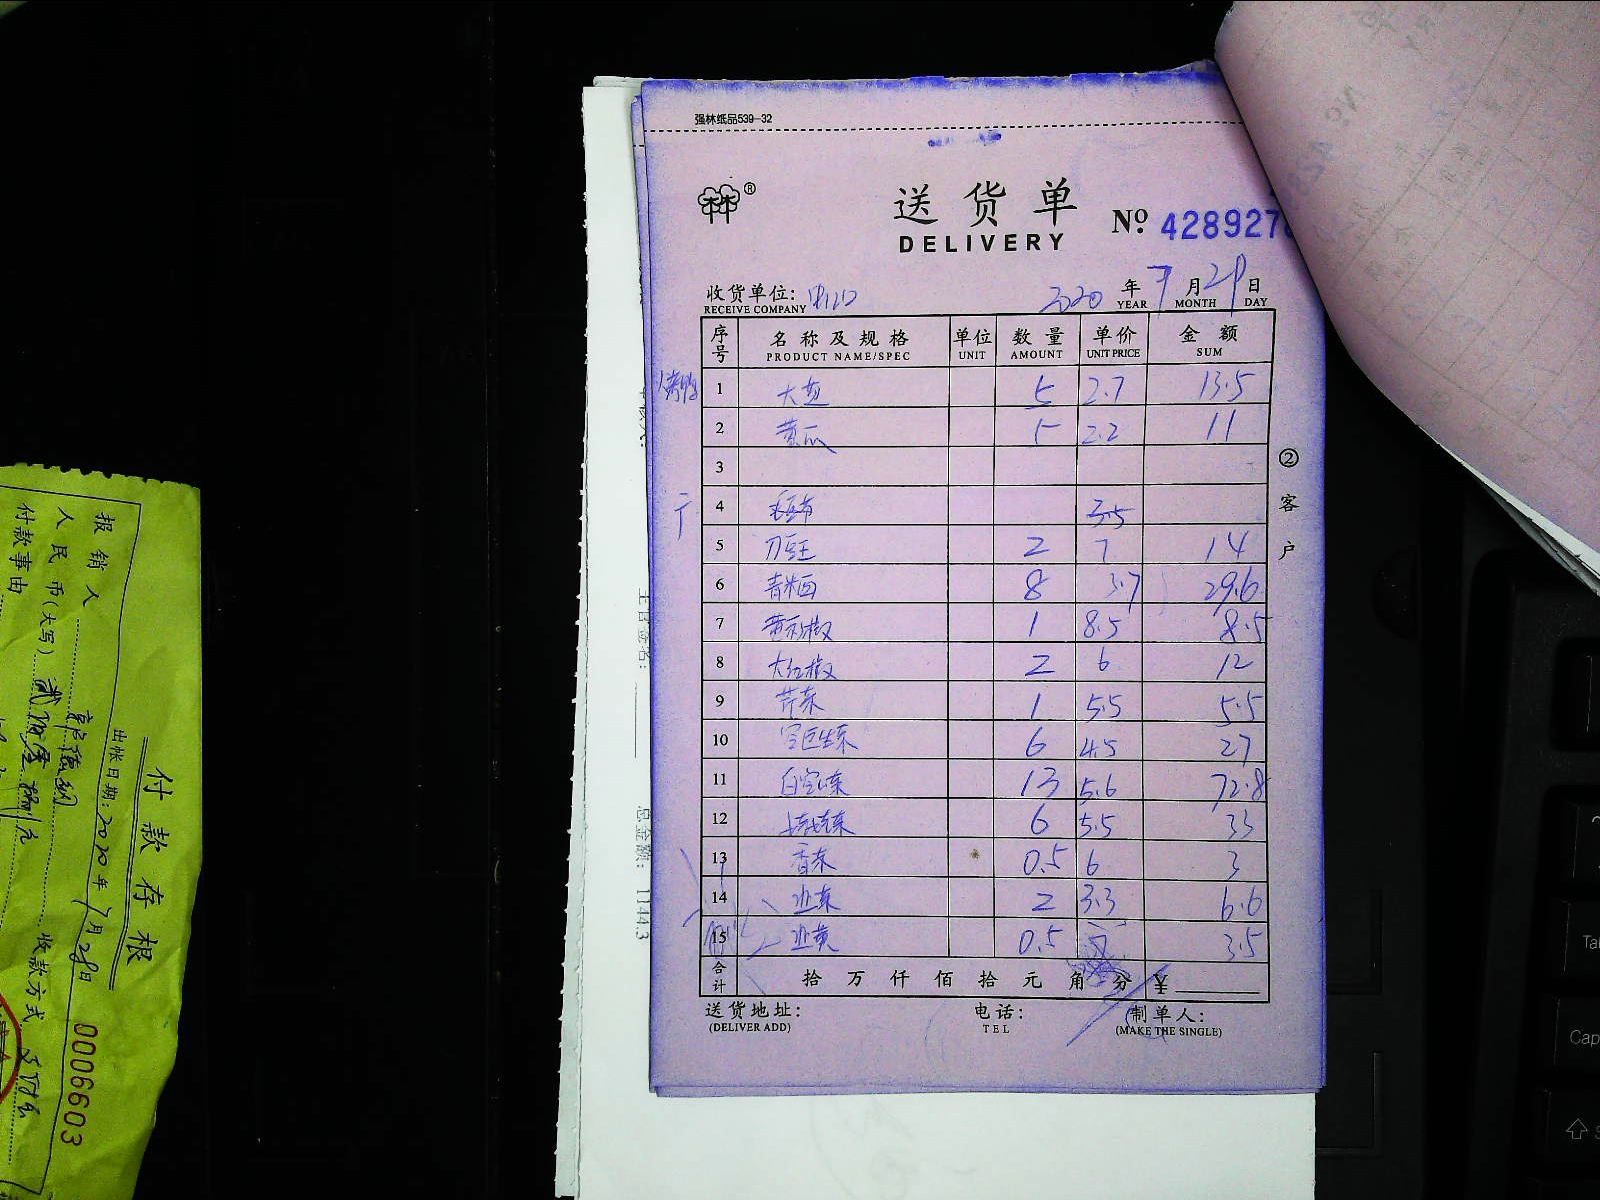 强林纸品539-32
林林®
送货单
DELIVERY
Nº 428927
收货单位:
RECEIVE COMPANY
2020 年 7 月 29 日
YEAR MONTH DAY
序号 名称及规格 单位 数量 单价 金额
PRODUCT NAME/SPEC UNIT AMOUNT UNIT PRICE SUM
1 大葱 5 2.7 13.5
2 黄瓜 5 2.2 11
3
4 3.5
5 刀豆 2 7 14
6 青 8 3.7 29.6
7 黄彩椒 1 8.5 8.5
8 大红椒 2 6 12
9 芹菜 1 5.5 5.5
10 生菜 6 4.5 27
11 白 菜 13 5.6 72.8
12 6 5.5 33
13 香菜 0.5 6 3
14 韭菜 2 3.3 6.6
15 韭黄 0.5 7 3.5
合计 拾万仟佰拾元角分 ¥
送货地址:
(DELIVER ADD)
电话:
TEL
制单人:
(MAKE THE SINGLE)
②客户
总金额: 1144.3
付款存根
出帐日期: 2020年7月28日
0006603
报销人
人民币(大写)
付款事由
收款方式
Tab
Cap